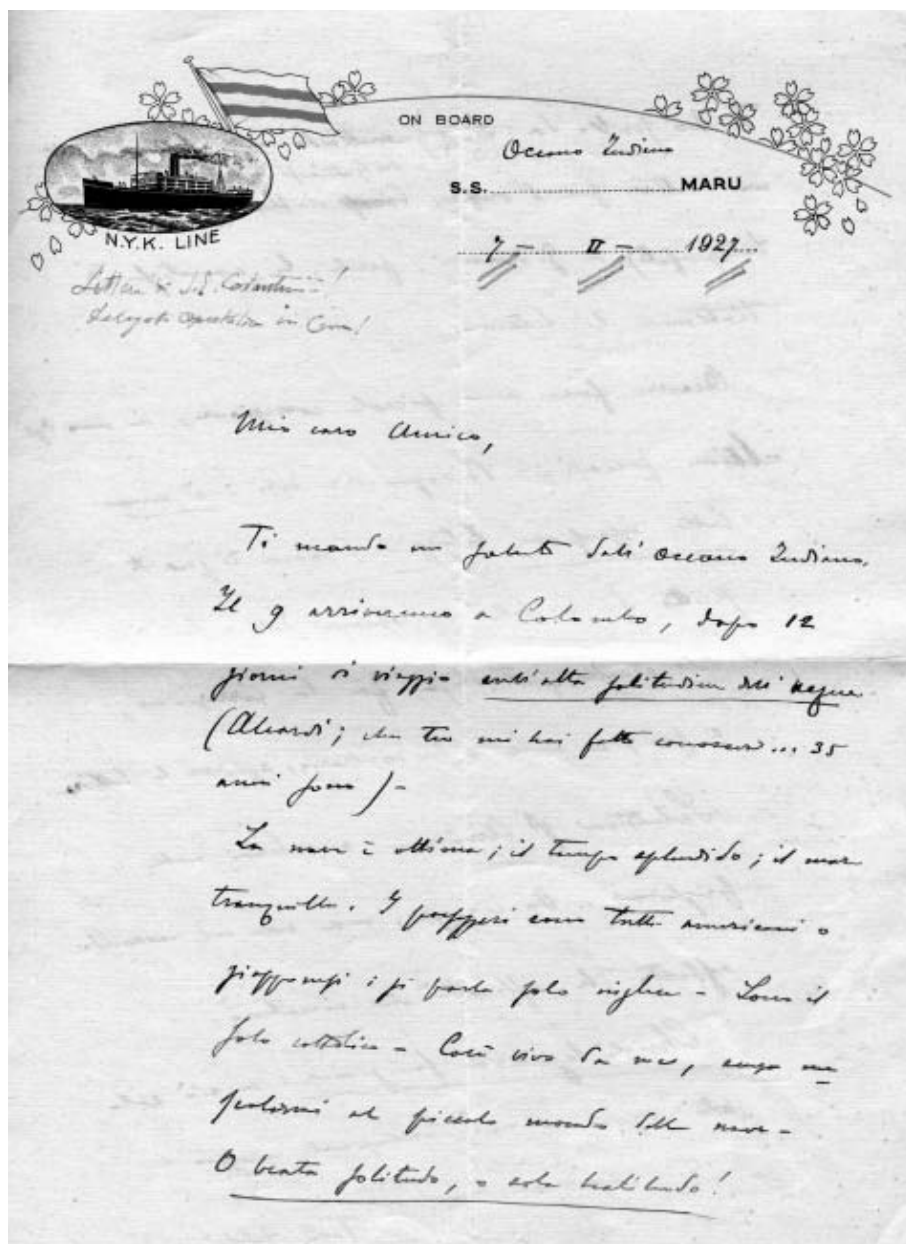 ON BOARD
Oceano Indiano
S.S. MARU
7 - II - 1927
N.Y.K. LINE
Lettera di S.E. Costantini!
Delegato Apostolico in Cina!
Mio caro Amico,
Ti mando un saluto dall'Oceano Indiano.
Il 9 arriveremo a Colombo, dopo 12
giorni di viaggio sull'alta solitudine dell'acque
(Aleardi; che tu mi hai fatto conoscere... 35
anni sono) -
La nave è ottima; il tempo splendido; il mare
tranquillo. I passeggeri sono tutti americani o
giapponesi; si parla solo inglese - Sono il
solo cattolico - Così vivo da me, senza me-
scolarmi al piccolo mondo della nave -
O beata solitudo, o sola beatitudo!